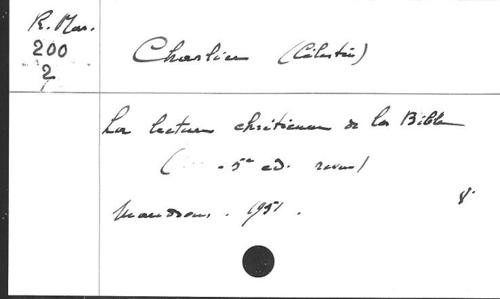 R. Mar.
200
2
Charlier (Célestin)
La lecture chrétienne de la Bible
( - 5e ed. revue)
Maredsous. 1951.
8°